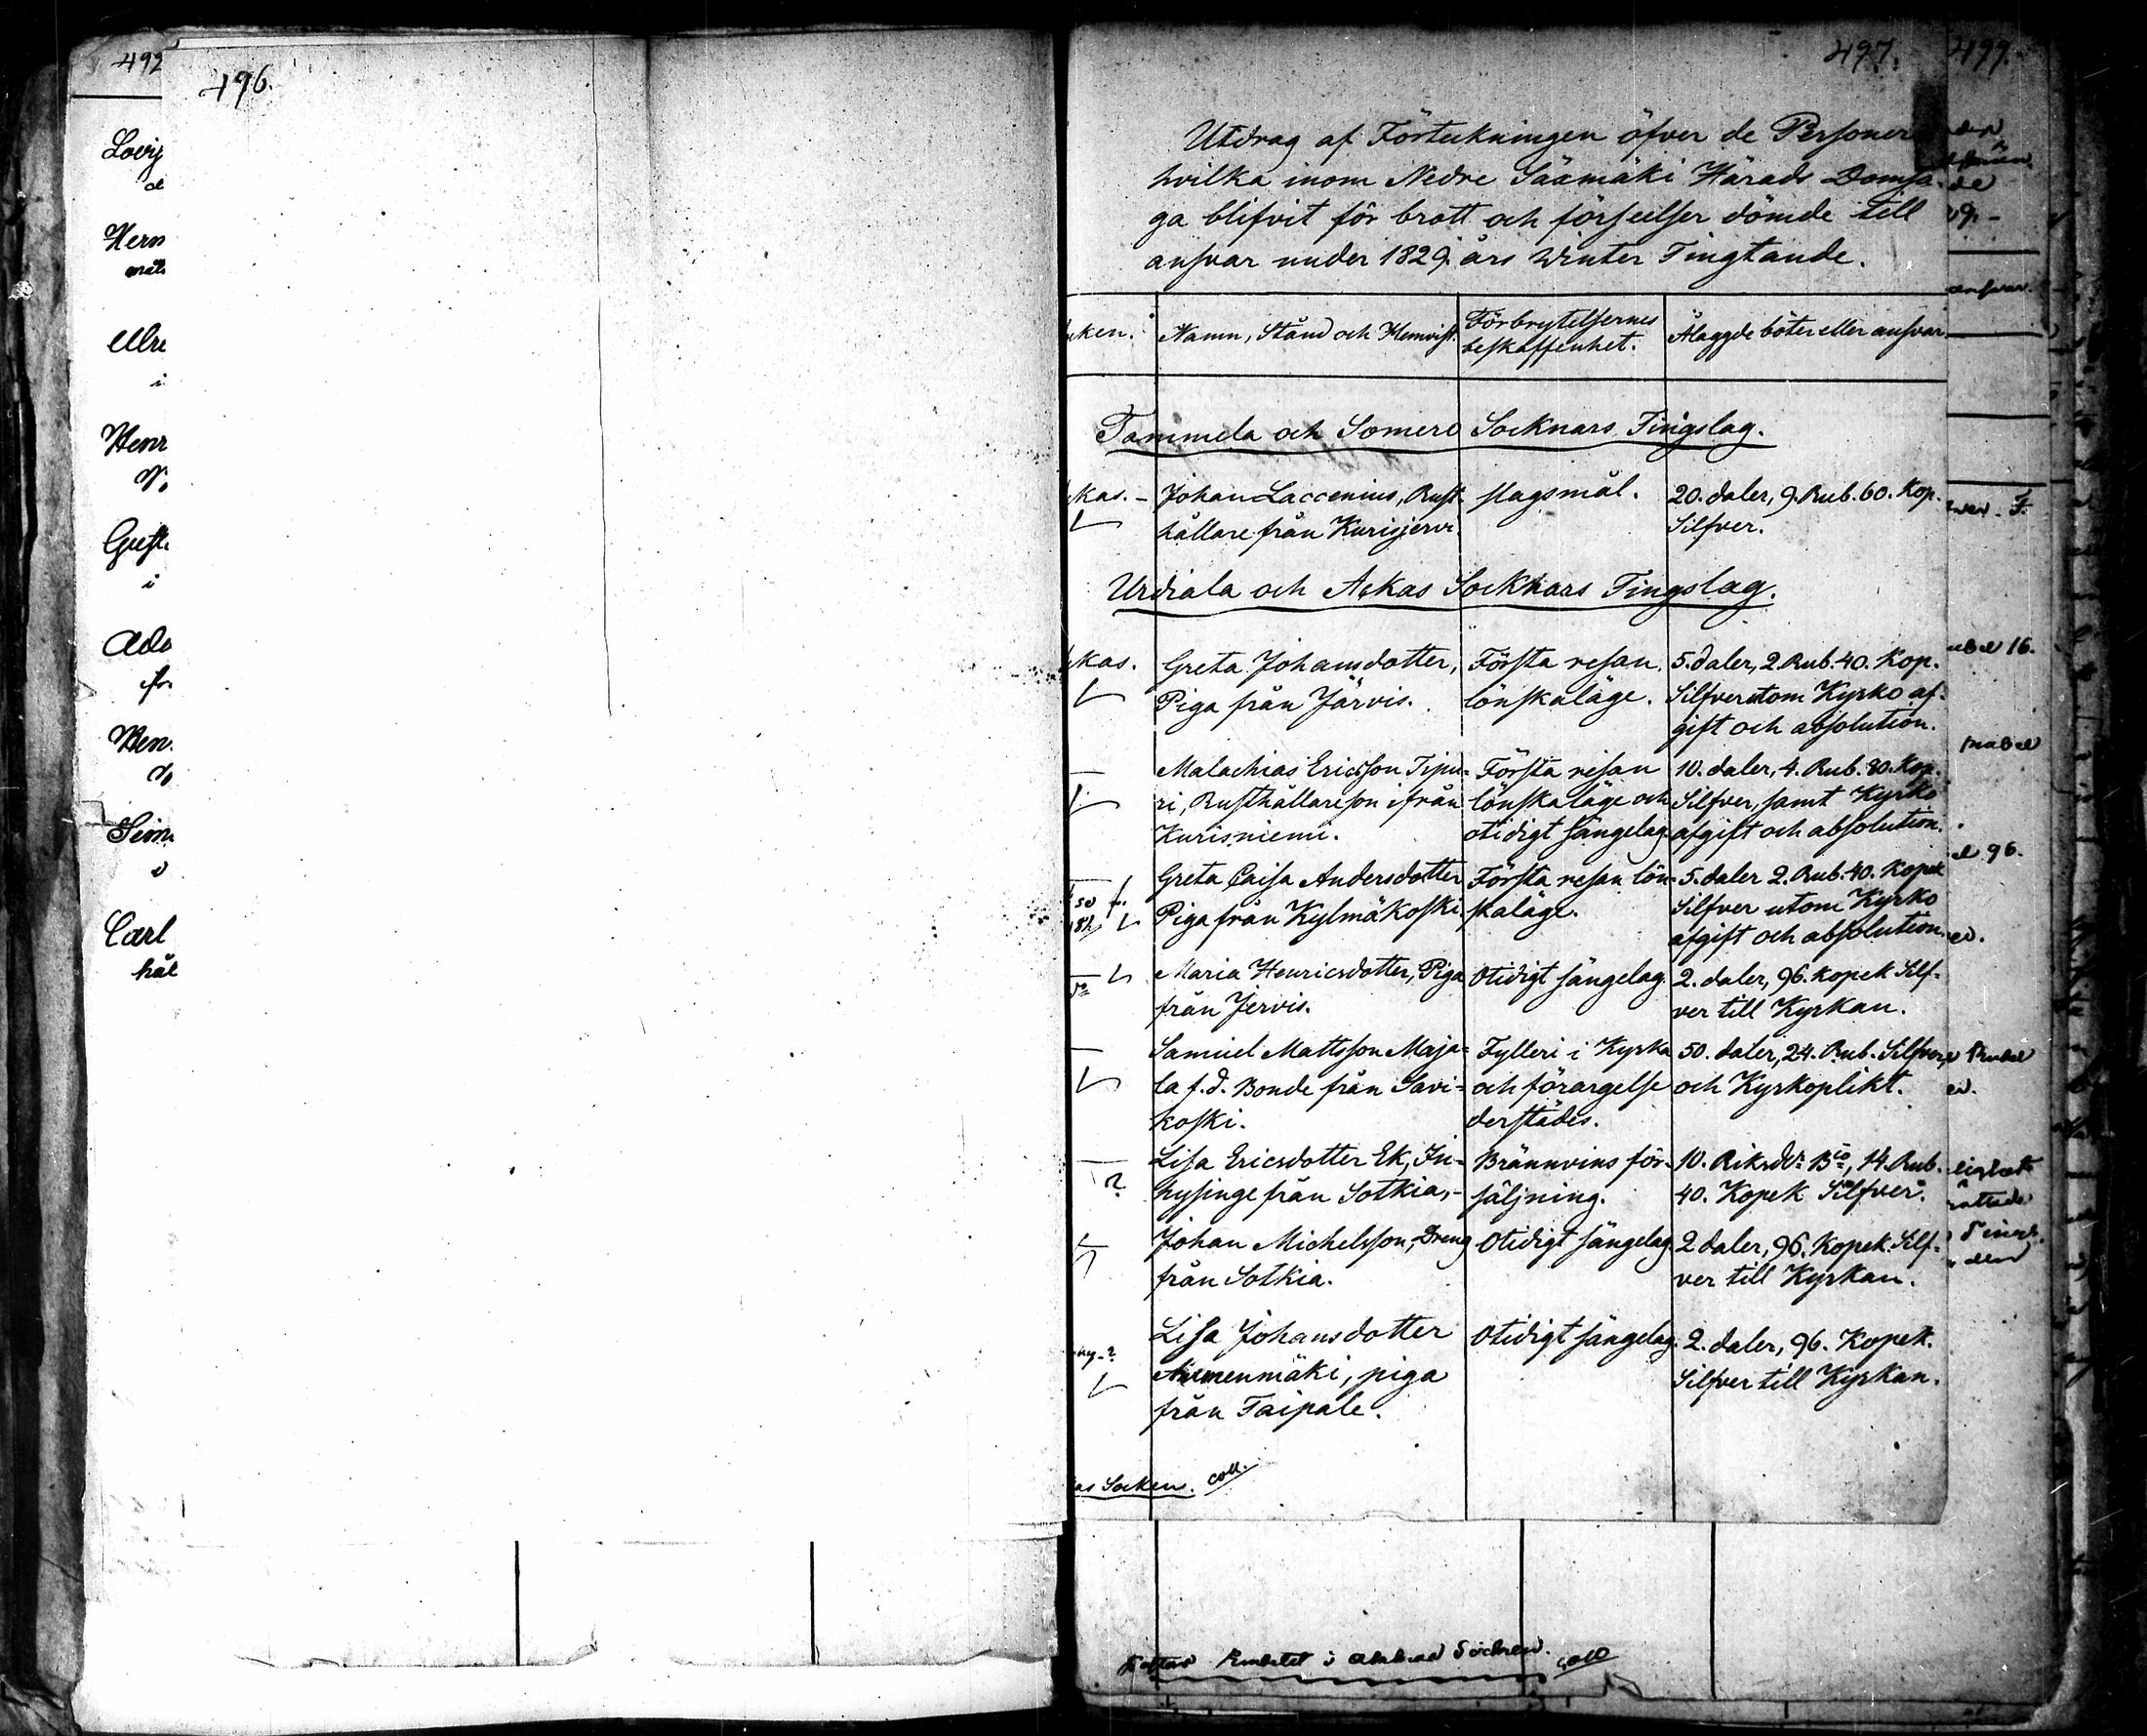 492
Lovi
Hern
Ulri
Henr
Gust
Ado
Hen
Sim
Carl
hål
496.
497.
Utdrag af Förteckningen öfver de Personer
hvilka inom Nedre Sääxmäki Härads Domsa-
ga blifvit för brott och förseelser dömde till
ansvar under 1829. års Winter Tingtande.
cken. Namn, Stånd och Hemvist. Förbrytelsernes beskaffenhet. Ålaggde böter eller ansvar
Tammela och Somero Socknars Tingslag.
kas. - Johan Laccenius, Rust- slagsmål. 20. daler, 9. Rub. 60. Kop.
hållare från Kurisjervi. Silfver.
Urdiala och Ackas Socknars Tingslag.
kas. Greta Johansdotter, Första resan 5. daler, 2. Rub. 40. Kop.
Piga från Järvis. lönskaläge. Silfver utom Kyrko af-
gift och absolution.
Malachias Ericsson Tipu= Första resan 10. daler, 4. Rub. 80. Kop.
ri, Rusthållareson ifrån lönskaläge och Silfver, samt Kyrko
Kurisniemi. otidigt sängelag afgift och absolution.
Greta Caisa Andersdotter Första resan lön- 5. daler 2. Rub. 40. Kopek
Piga från Kylmäkoski. skaläge. Silfver utom Kyrko
afgift och absolution.
Maria Henricsdotter, Piga Otidigt sängelag. 2. daler, 96. Kopek Silf-
från Jervis. ver till Kyrkan.
Samuel Mattsson Maja= Fylleri i Kyrka 50. daler, 24. Rub. Silfver,
la f.d. Bonde från Savi= och förargelse och Kyrkoplikt.
koski. derstädes.
Lisa Ericsdotter Ek, In- Brännvins för- 10. Riksdr Bco, 14. Rub.
? hysinge från Sotkia, - säljning. 40. Kopek Silfver.
Johan Michelsson, Dreng Otidigt sängelag 2 daler, 96. Kopek. Silf-
från Sotkia. ver till Kyrkan.
Lisa Johansdotter Otidigt sängelag. 2. daler, 96. Kopek.
mäki, piga Silfver till Kyrkan.
från Taipale.
as Socken. coll.
499.
ubel 16.
Rubel
el 96.
Rubel
Embetet i Socken. coll